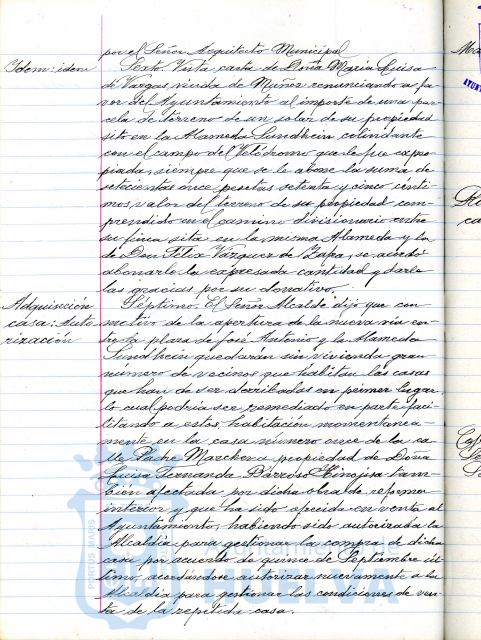 por el Señor Arquitecto Municipal
Idem: idem
Sexto. Vista carta de Doña Maria Luisa
de Vargas, viuda de Muñoz renunciando a fa-
vor del Ayuntamiento al importe de una par-
cela de terreno de un solar de su propiedad
sito en la Alameda Sundheim colindante
con el campo del Velódromo que le fue expro-
piada, siempre que se le abone la suma de
setecientas once pesetas setenta y cinco centi-
mos, valor del terreno de su propiedad com-
prendido en el camino divisionario entre
su finca sita en la misma Alameda y la
de Don Felix Vazquez de Zapa, se acordó
abonarle la expresada cantidad y darle
las gracias por su donativo.
Adquisición
casa: Auto-
rización
Séptimo. El Señor Alcalde dijo que con
motivo de la apertura de la nueva via en-
tre la plaza de José Antonio y la Alameda
Sundheim quedarán sin vivienda gran
número de vecinos que habitan las casas
que han de ser derribadas en primer lugar,
lo cual podria ser remediado en parte faci-
litando a estos, habitación momentanea-
mente en la casa número once de la ca-
lle Padre Marchena propiedad de Doña
Luisa Fernanda Barroso Hinojosa tam-
bién afectada por dicha obra de reforma
interior y que ha sido ofrecida en venta al
Ayuntamiento, habiendo sido autorizada la
Alcaldia para gestionar la compra de dicha
casa por acuerdo de quince de Septiembre úl-
timo, acordandose autorizar nuevamente a la
Alcaldia para gestionar las condiciones de ven-
ta de la repetida casa.
Ayuntamiento de
HUELVA
PORTUS MARIS